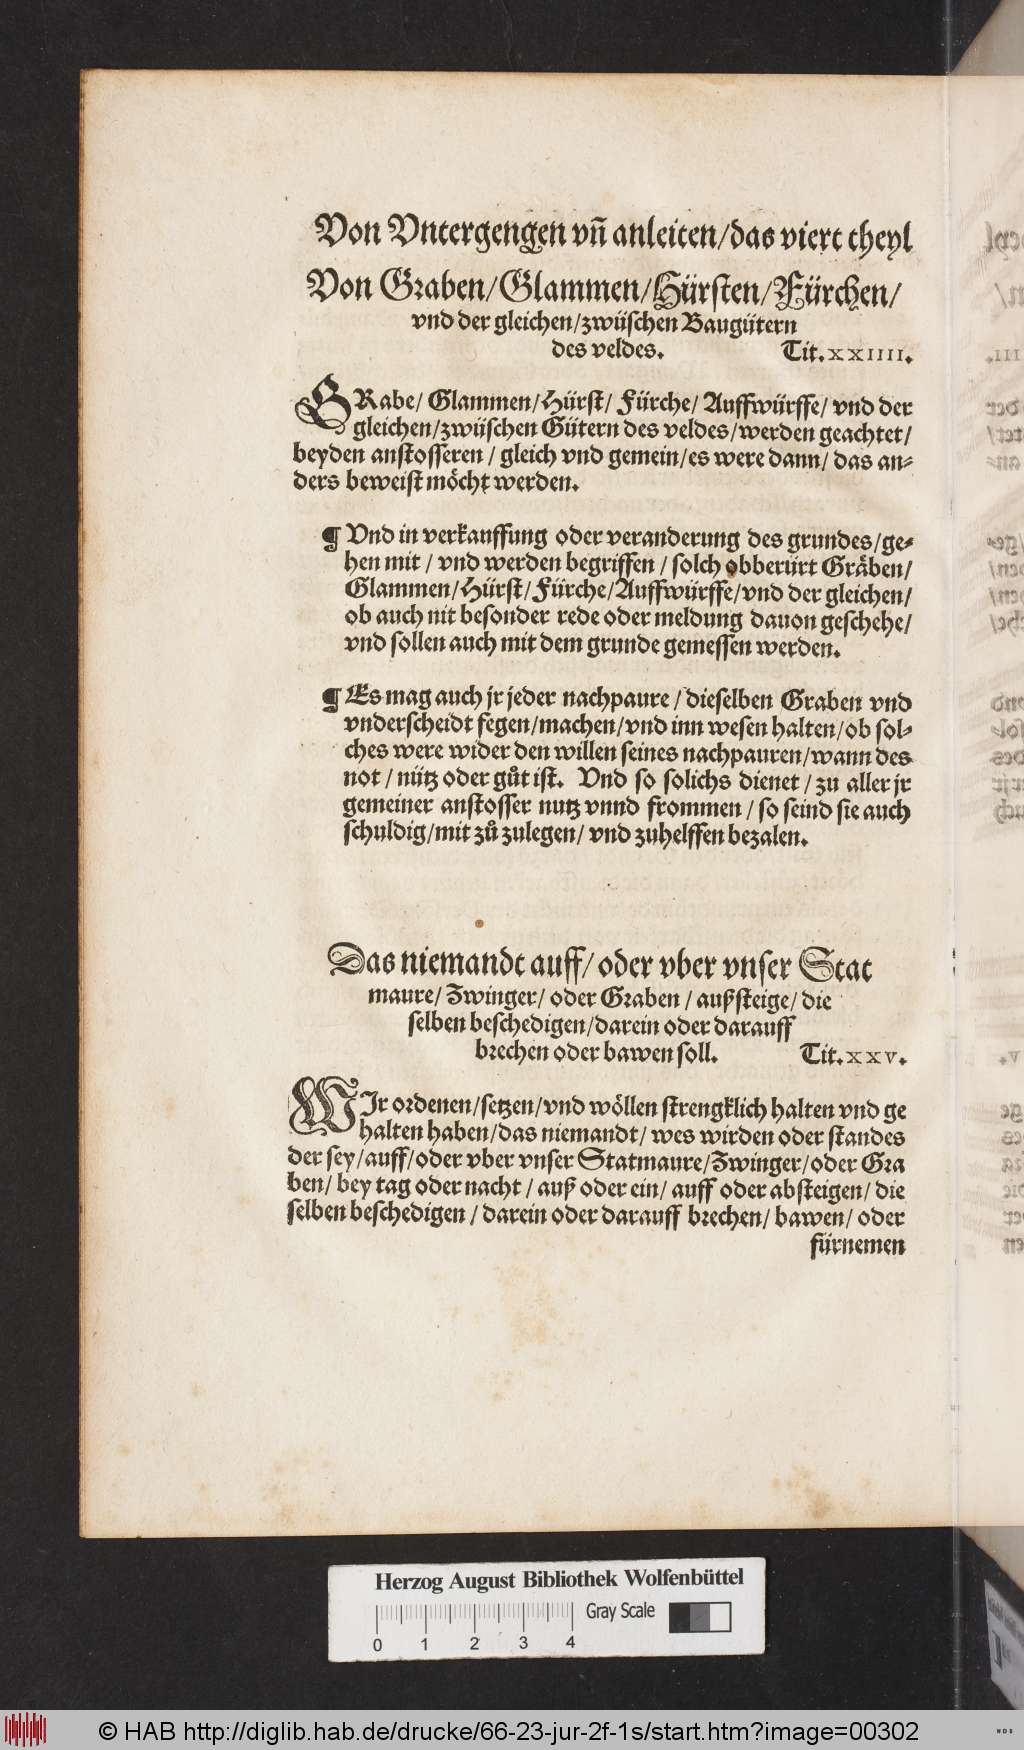 Von Vntergengen vn̄ anleiten/das viert theyl
Von Graben/Glammen/Hürsten/Fürchen/
vnd der gleichen/zwüschen Baugütern
des veldes. Tit.XXIIII.
GRabe/ Glammen/Hürst/ Fürche/ Auffwürffe/ vnd der
gleichen/zwüschen Gütern des veldes/werden geachtet/
beyden anstosseren / gleich vnd gemein/es were dann/ das an-
ders beweist möcht werden.
¶ Vnd in verkauffung oder veranderung des grundes/ge-
hen mit / vnd werden begriffen / solch obberürt Gräben/
Glammen/Hürst/Fürche/Auffwürffe/vnd der gleichen/
ob auch nit besonder rede oder meldung dauon geschehe/
vnd sollen auch mit dem grunde gemessen werden.
¶ Es mag auch jr jeder nachpaure / dieselben Graben vnd
vnderscheidt fegen/machen/vnd inn wesen halten/ob sol-
ches were wider den willen seines nachpauren/wann des
not / nütz oder gůt ist. Vnd so solichs dienet / zu aller jr
gemeiner anstosser nutz vnnd frommen / so seind sie auch
schuldig/mit zů zulegen/ vnd zuhelffen bezalen.
Das niemandt auff/ oder vber vnser Stat
maure/ Zwinger/ oder Graben / außsteige/ die
selben beschedigen/darein oder darauff
brechen oder bawen soll. Tit.XXV.
WIr ordenen/setzen/vnd wöllen strengklich halten vnd ge
halten haben/das niemandt/ wes wirden oder standes
der sey/auff/oder vber vnser Statmaure/Zwinger/oder Gra
ben/ bey tag oder nacht / auß oder ein/ auff oder absteigen/ die
selben beschedigen / darein oder darauff brechen/ bawen/ oder
fürnemen
Herzog August Bibliothek Wolfenbüttel
Gray Scale
0 1 2 3 4
© HAB http://diglib.hab.de/drucke/66-23-jur-2f-1s/start.htm?image=00302